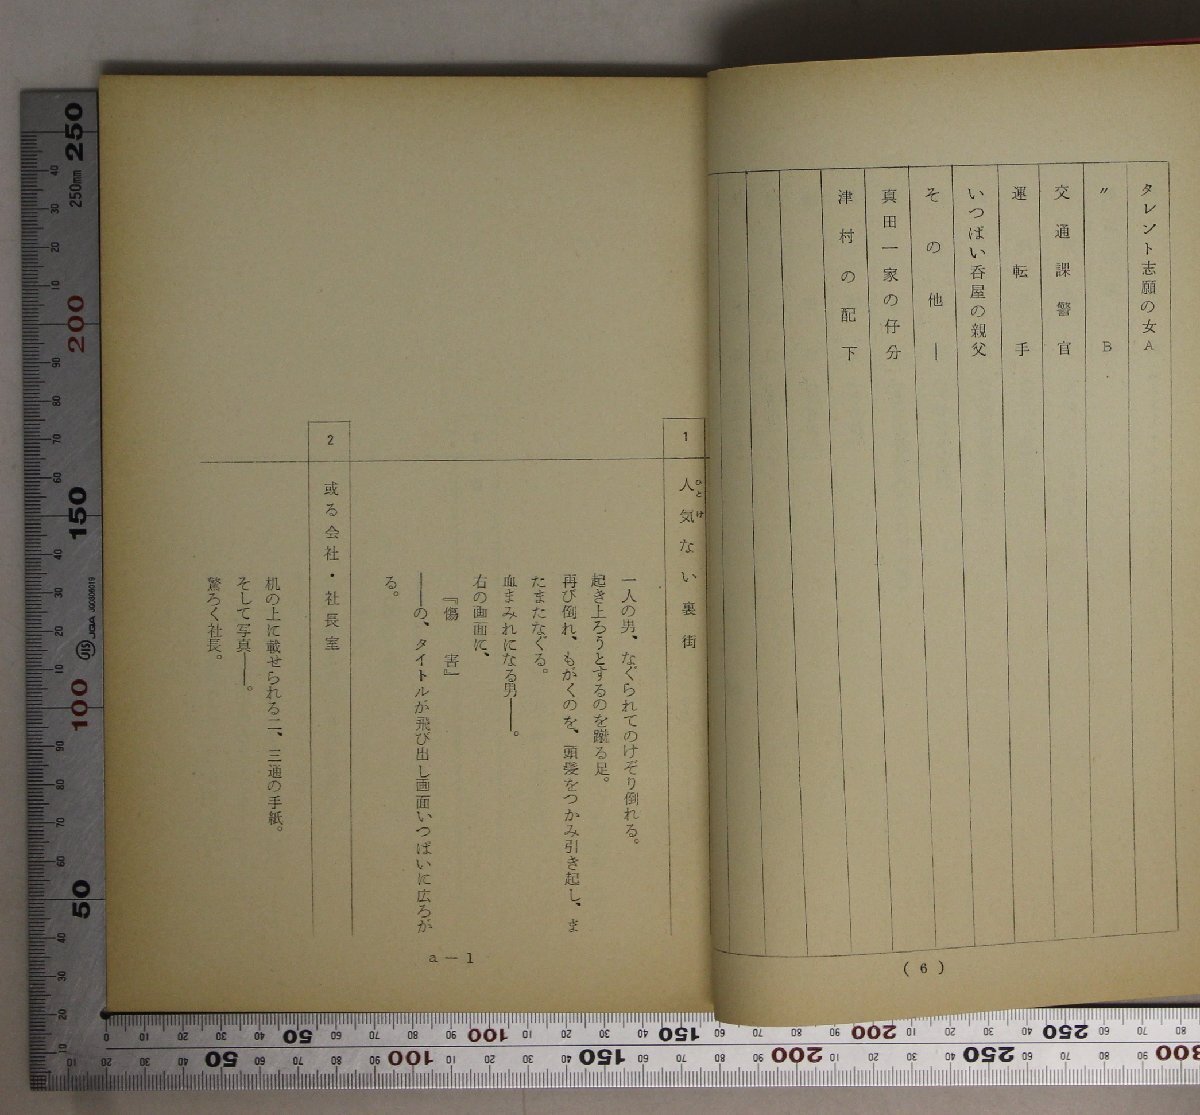 タレント志願の女A
〃　B
交通課警官
運転手
いつぱい呑屋の親父
その他―
真田一家の仔分
津村の配下
(6)
1
人気ない裏街
ひとけ
一人の男、なぐられてのけぞり倒れる。
起き上ろうとするのを蹴る足。
再び倒れ、もがくのを、頭髪をつかみ引き起し、ま
たまたなぐる。
血まみれになる男――。
右の画面に、
『傷　害』
――の、タイトルが飛び出し画面いつぱいに広ろが
る。
2
或る会社・社長室
机の上に載せられる二、三通の手紙。
そして写真――。
驚ろく社長。
a－1